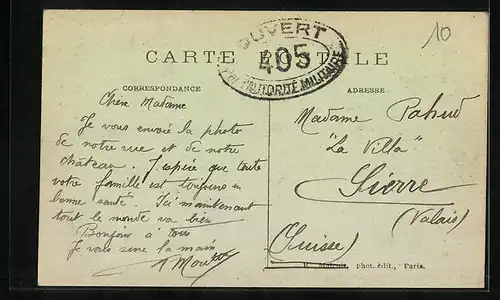 10
OUVERT
CARTE POSTALE
405
PAR L'AUTORITÉ MILITAIRE
CORRESPONDANCE
Chère Madame
Je vous envoie la photo
de notre rue et de notre
château. J'espère que toute
votre famille est toujours en
bonne santé. Ici maintenant
tout le monde va bien
Bonjour à tous
Je vous serre la main
ADRESSE
Madame Pahud
"La Villa"
Sierre
(Valais)
(Suisse)
phot. édit., Paris.